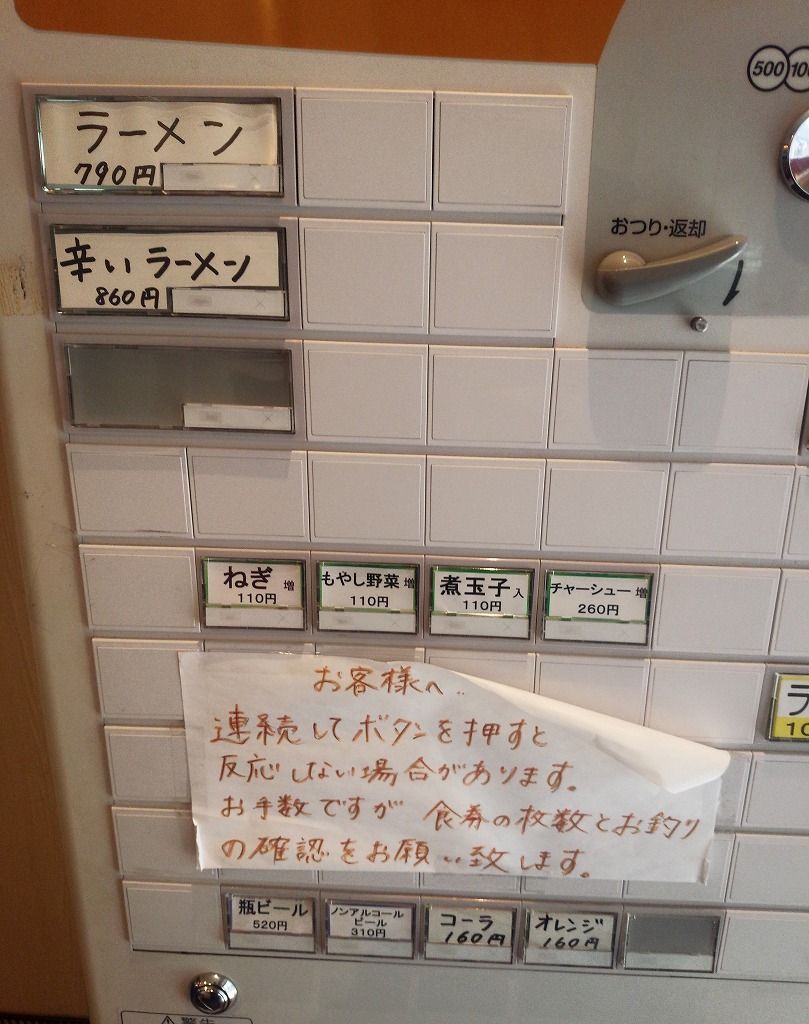 500
ラーメン
790円
おつり・返却
辛いラーメン
860円
ねぎ 増
110円
もやし野菜 増
110円
煮玉子 入
110円
チャーシュー 増
260円
お客様へ
連続してボタンを押すと
反応しない場合があります。
お手数ですが 食券の枚数とお釣り
の確認をお願い致します。
瓶ビール
520円
ノンアルコール
ビール
310円
コーラ
160円
オレンジ
160円
警告